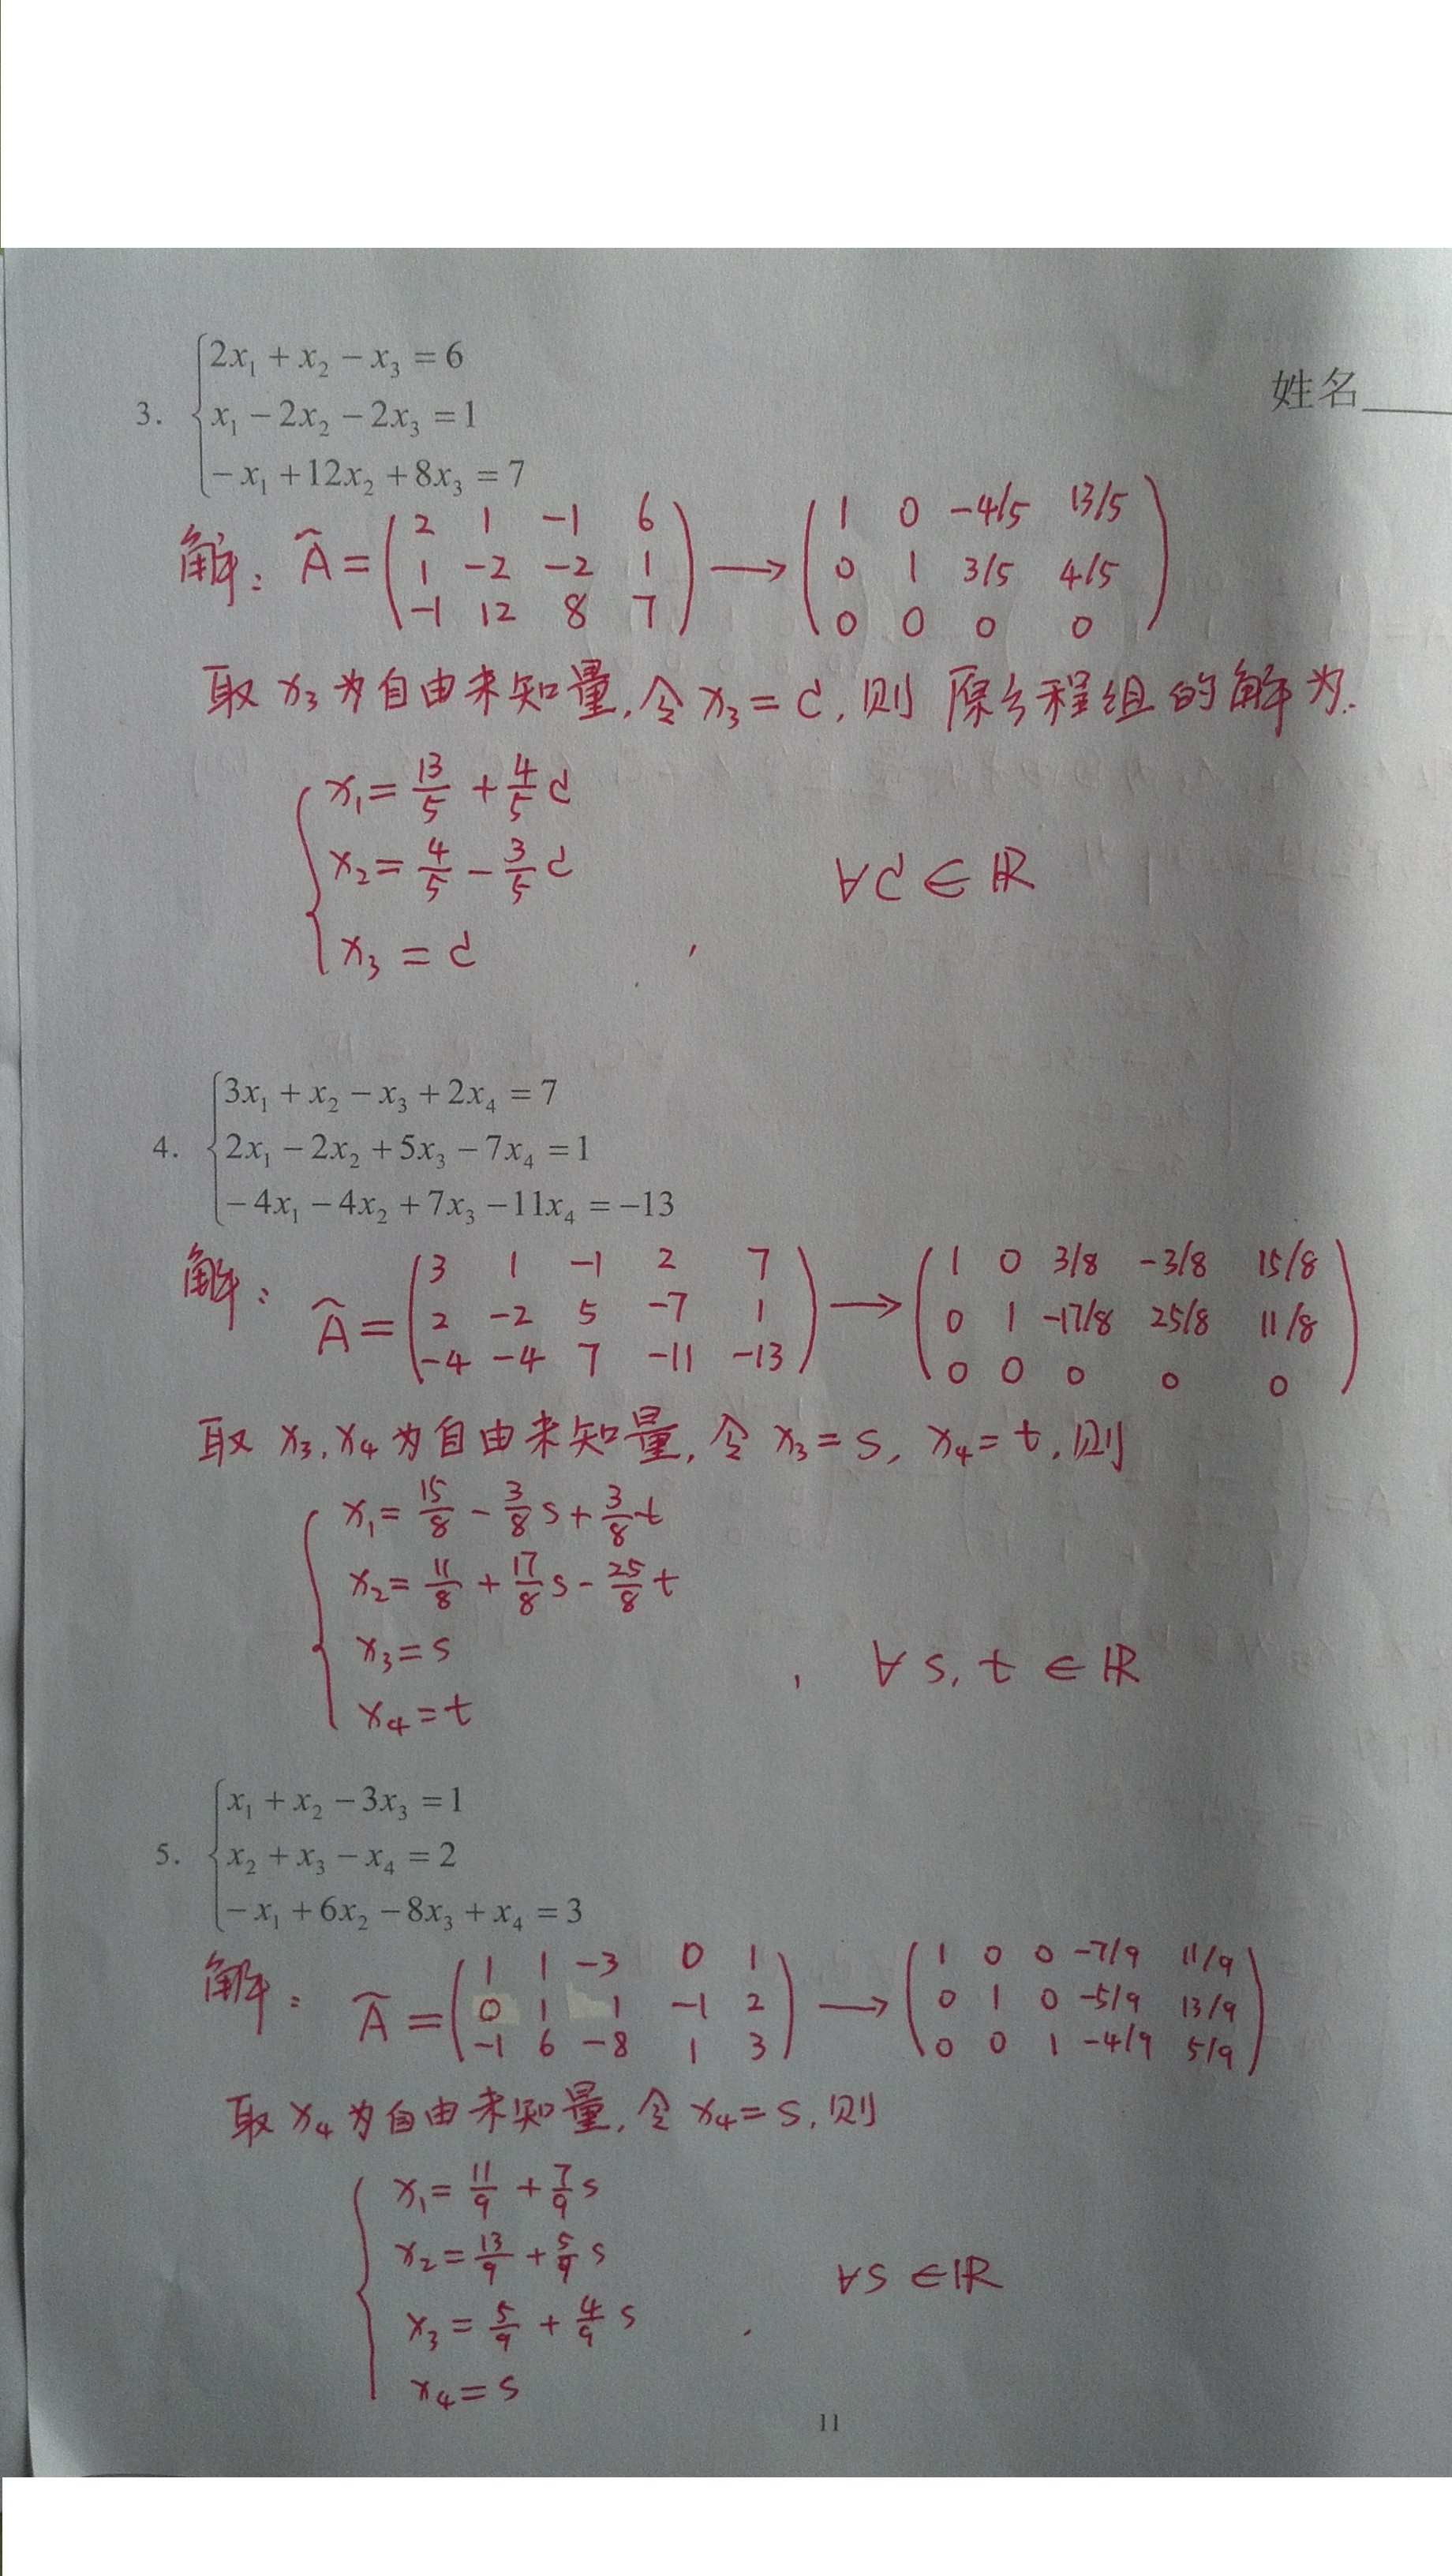 姓名
3. { 2x₁ + x₂ − x₃ = 6
x₁ − 2x₂ − 2x₃ = 1
−x₁ + 12x₂ + 8x₃ = 7
解: Ã = ( 2 1 -1 6 ) → ( 1 0 -4/5 13/5 )
( 1 -2 -2 1 ) ( 0 1 3/5 4/5 )
( -1 12 8 7 ) ( 0 0 0 0 )
取 x₃ 为自由未知量, 令 x₃ = c, 则 原方程组的解为:
{ x₁ = 13/5 + 4/5 c
x₂ = 4/5 − 3/5 c
x₃ = c , ∀c ∈ ℝ
4. { 3x₁ + x₂ − x₃ + 2x₄ = 7
2x₁ − 2x₂ + 5x₃ − 7x₄ = 1
−4x₁ − 4x₂ + 7x₃ − 11x₄ = −13
解: Ã = ( 3 1 -1 2 7 ) → ( 1 0 3/8 -3/8 15/8 )
( 2 -2 5 -7 1 ) ( 0 1 -17/8 25/8 11/8 )
( -4 -4 7 -11 -13 ) ( 0 0 0 0 0 )
取 x₃, x₄ 为自由未知量, 令 x₃ = s, x₄ = t, 则
{ x₁ = 15/8 − 3/8 s + 3/8 t
x₂ = 11/8 + 17/8 s − 25/8 t
x₃ = s
x₄ = t , ∀ s, t ∈ ℝ
5. { x₁ + x₂ − 3x₃ = 1
x₂ + x₃ − x₄ = 2
−x₁ + 6x₂ − 8x₃ + x₄ = 3
解: Ã = ( 1 1 -3 0 1 ) → ( 1 0 0 -7/9 11/9 )
( 0 1 1 -1 2 ) ( 0 1 0 -5/9 13/9 )
( -1 6 -8 1 3 ) ( 0 0 1 -4/9 5/9 )
取 x₄ 为自由未知量, 令 x₄ = s, 则
{ x₁ = 11/9 + 7/9 s
x₂ = 13/9 + 5/9 s
x₃ = 5/9 + 4/9 s , ∀s ∈ ℝ
x₄ = s
11